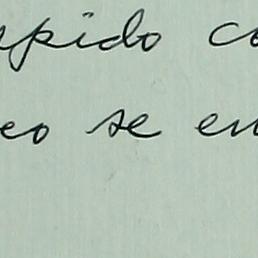 pido co
eo se en